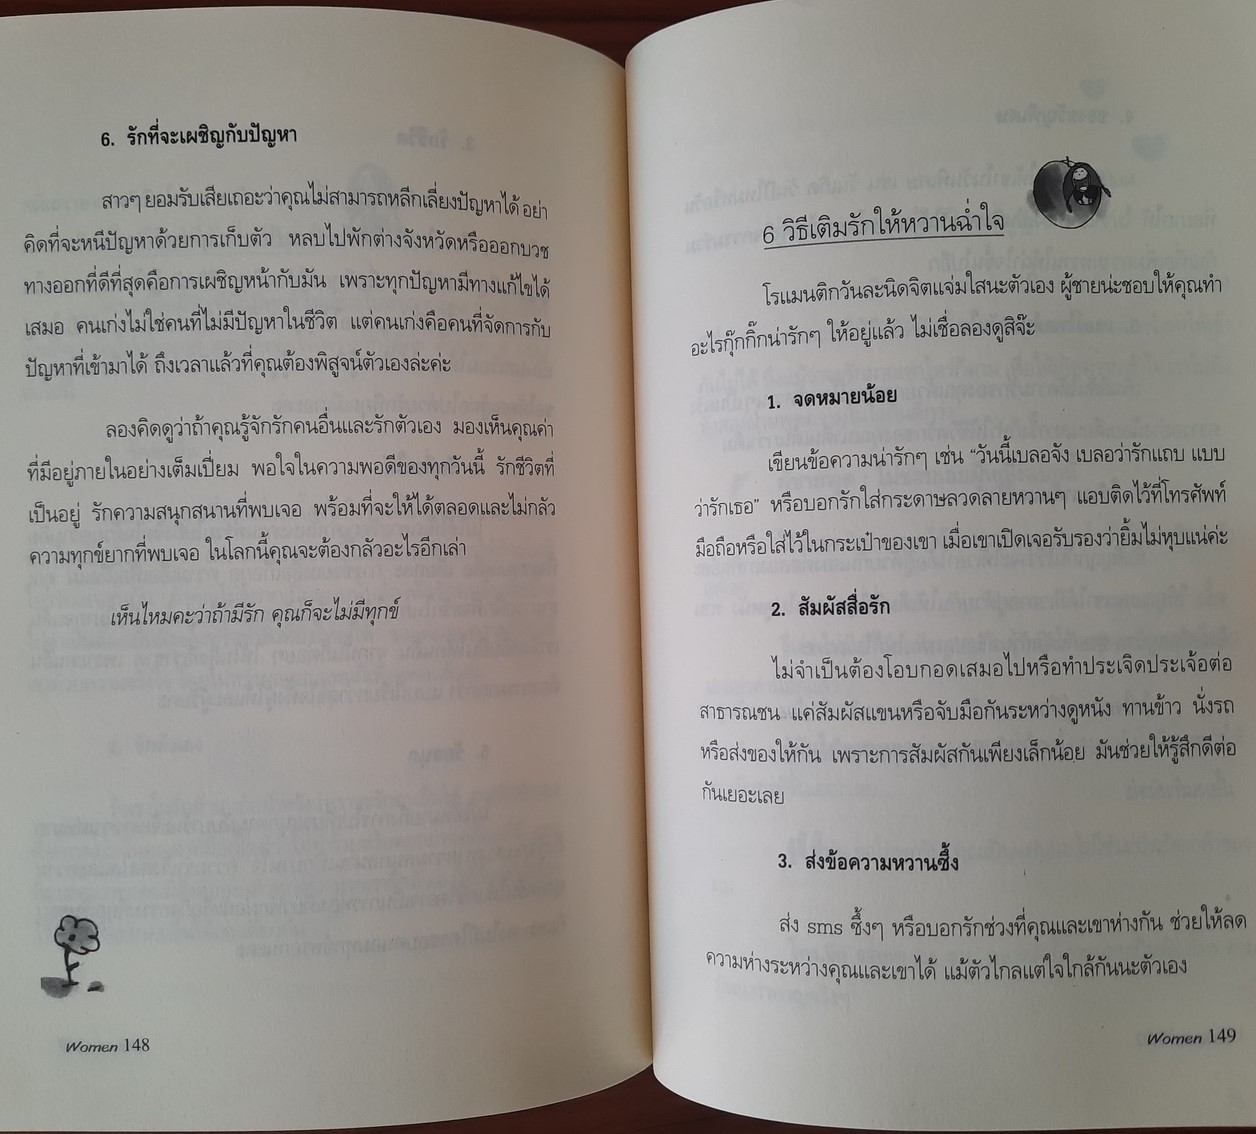 6. รักที่จะเผชิญกับปัญหา
สาวๆ ยอมรับเสียเถอะว่าคุณไม่สามารถหลีกเลี่ยงปัญหาได้ อย่า
คิดที่จะหนีปัญหาด้วยการเก็บตัว หลบไปพักต่างจังหวัดหรือออกบวช
ทางออกที่ดีที่สุดคือการเผชิญหน้ากับมัน เพราะทุกปัญหามีทางแก้ไขได้
เสมอ คนเก่งไม่ใช่คนที่ไม่มีปัญหาในชีวิต แต่คนเก่งคือคนที่จัดการกับ
ปัญหาที่เข้ามาได้ ถึงเวลาแล้วที่คุณต้องพิสูจน์ตัวเองล่ะค่ะ
ลองคิดดูว่าถ้าคุณรู้จักรักคนอื่นและรักตัวเอง มองเห็นคุณค่า
ที่มีอยู่ภายในอย่างเต็มเปี่ยม พอใจในความพอดีของทุกวันนี้ รักชีวิตที่
เป็นอยู่ รักความสนุกสนานที่พบเจอ พร้อมที่จะให้ได้ตลอดและไม่กลัว
ความทุกข์ยากที่พบเจอ ในโลกนี้คุณจะต้องกลัวอะไรอีกเล่า
เห็นไหมคะว่าถ้ามีรัก คุณก็จะไม่มีทุกข์
Women 148
6 วิธีเติมรักให้หวานฉ่ำใจ
โรแมนติกวันละนิดจิตแจ่มใสนะตัวเอง ผู้ชายน่ะชอบให้คุณทำ
อะไรกุ๊กกิ๊กน่ารักๆ ให้อยู่แล้ว ไม่เชื่อลองดูสิจ๊ะ
1. จดหมายน้อย
เขียนข้อความน่ารักๆ เช่น “วันนี้เบลอจัง เบลอว่ารักแถบ แบบ
ว่ารักเธอ” หรือบอกรักใส่กระดาษลวดลายหวานๆ แอบติดไว้ที่โทรศัพท์
มือถือหรือใส่ไว้ในกระเป๋าของเขา เมื่อเขาเปิดเจอรับรองว่ายิ้มไม่หุบแน่ค่ะ
2. สัมผัสสื่อรัก
ไม่จำเป็นต้องโอบกอดเสมอไปหรือทำประเจิดประเจ้อต่อ
สาธารณชน แค่สัมผัสแขนหรือจับมือกันระหว่างดูหนัง ทานข้าว นั่งรถ
หรือส่งของให้กัน เพราะการสัมผัสกันเพียงเล็กน้อย มันช่วยให้รู้สึกดีต่อ
กันเยอะเลย
3. ส่งข้อความหวานซึ้ง
ส่ง sms ซึ้งๆ หรือบอกรักช่วงที่คุณและเขาห่างกัน ช่วยให้ลด
ความห่างระหว่างคุณและเขาได้ แม้ตัวไกลแต่ใจใกล้กันนะตัวเอง
Women 149